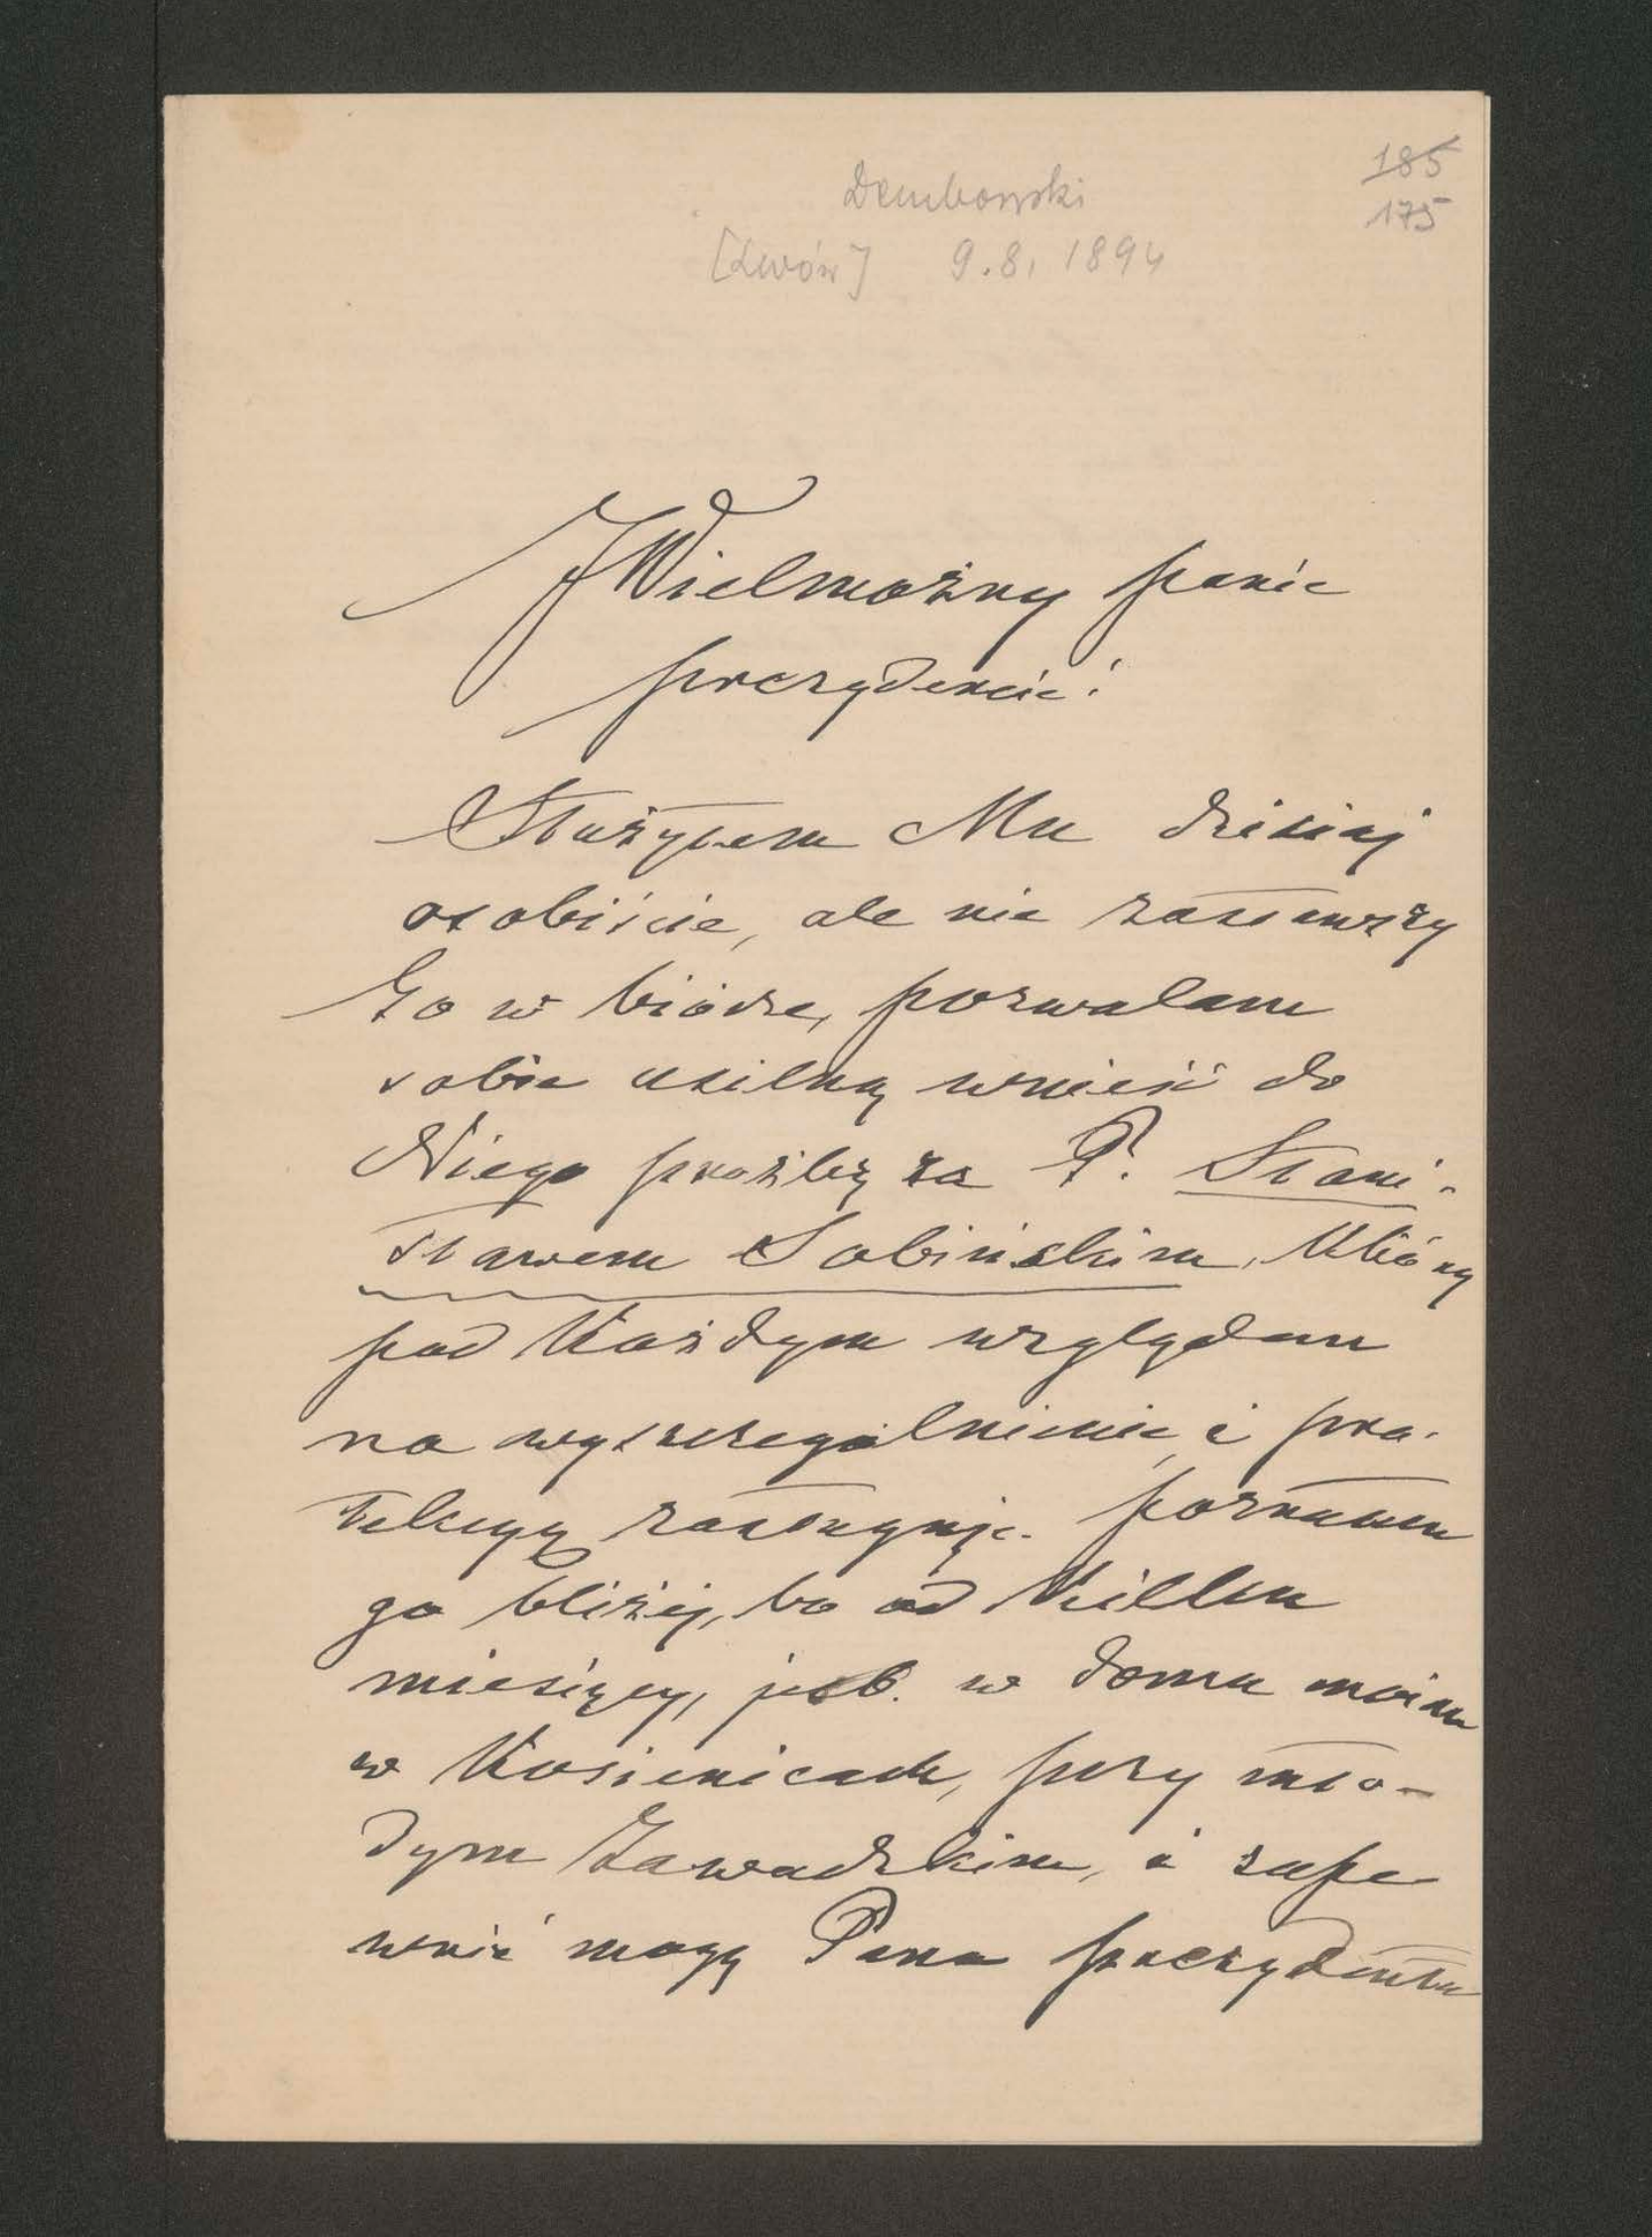 Dembowski
185
175
[Lwów] 9.8.1894
JWielmożny panie
prezydencie!
Służyłem Mu dzisiaj
osobiście, ale nie zastawszy
Go w biórze, pozwalam
sobie usilną wnieść do
Niego prośbę za P. Stani-
sławem Sobińskim, który
pod każdym względem
na wyszczególnienie i pro-
tekcyą zasługuje. poznałem
go bliżej, bo od kilku
miesięcy, jest w domu moim
w Kosienicach, przy mło-
dym Zawadzkim, i zape
wnić mogę Pana prezydenta